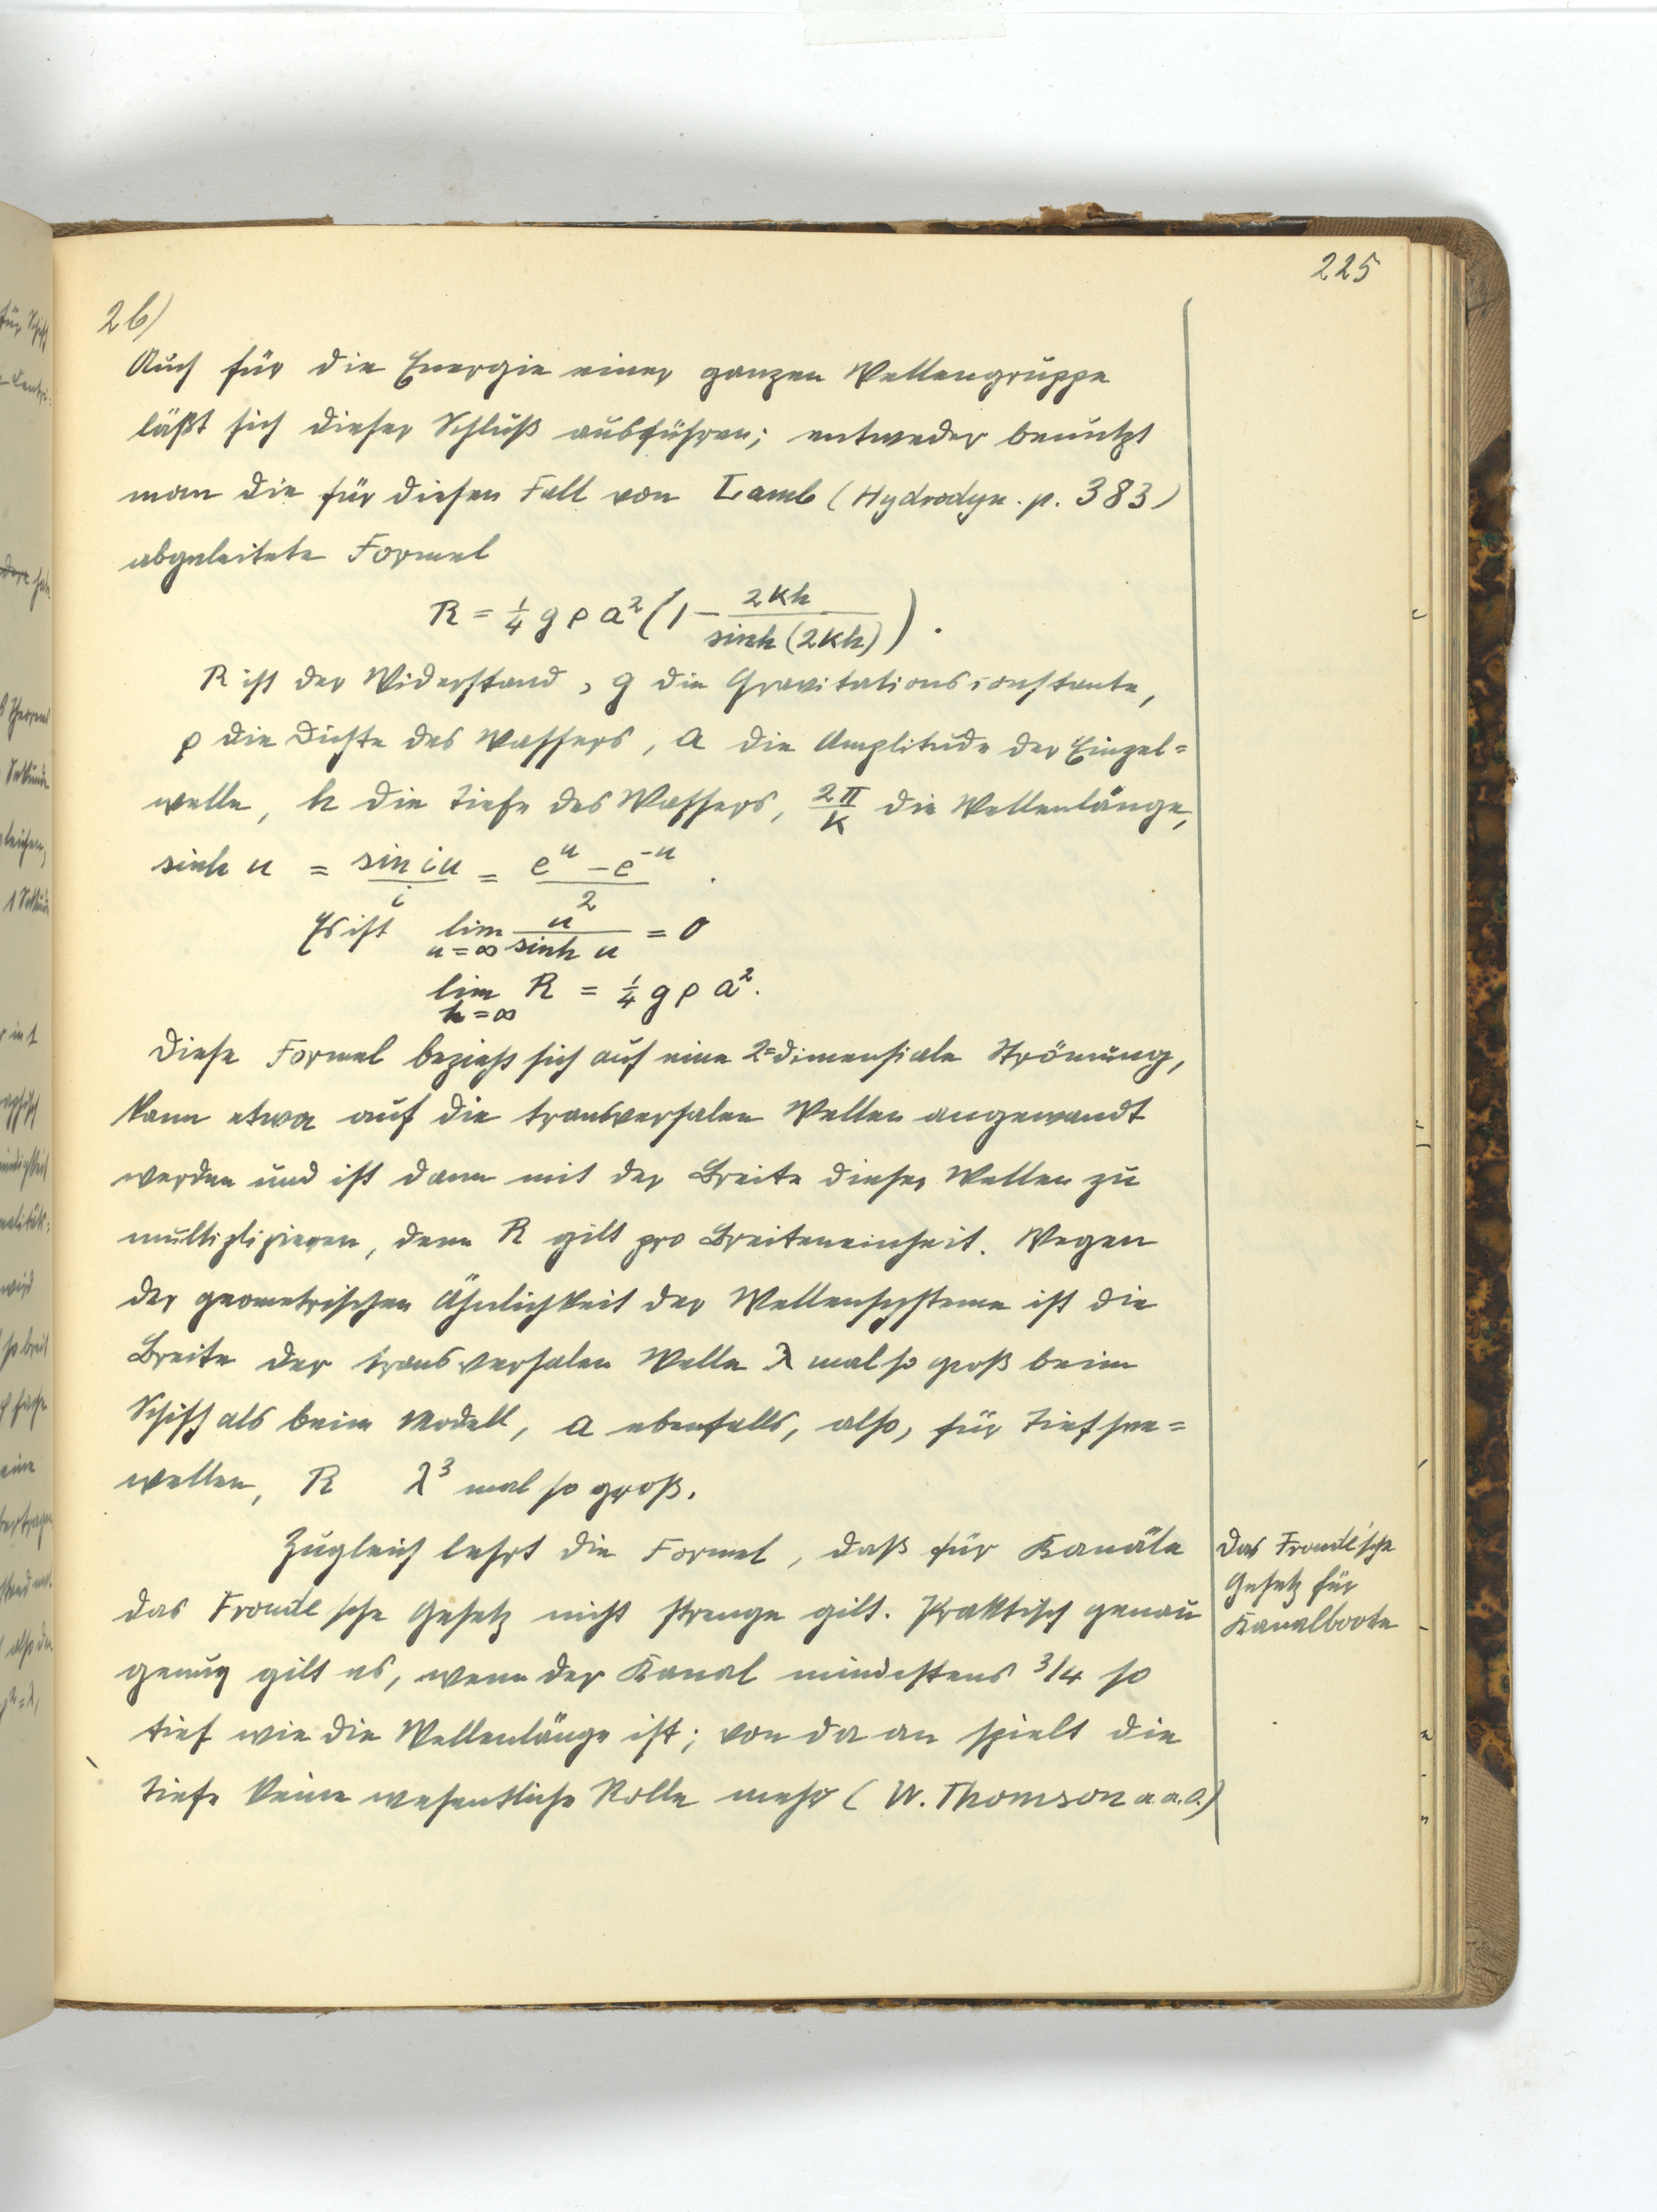 225
2b)
Auch für die Energie einer ganzen Wellengruppe
läßt sich dieser Schluß ausführen; entweder benutzt
man die für diesen Fall von Lamb (Hydrodyn. p. 383)
abgeleitete Formel
R = 1/4 g ρ a² (1 − 2kh / sinh (2kh)).
R ist der Widerstand, g die Gravitationsconstante,
ρ die Dichte des Wassers, a die Amplitude der Einzel=
welle, h die Tiefe des Wassers, 2π/k die Wellenlänge,
sinh u = sin iu / i = (e^u − e^−u) / 2.
Es ist lim u=∞ u / sinh u = 0
lim h=∞ R = 1/4 g ρ a².
Diese Formel bezieht sich auf eine 2=dimensiale Strömung,
kann etwa auf die transversalen Wellen angewandt
werden und ist dann mit der Breite dieser Wellen zu
multiplizieren, denn R gilt pro Breiteneinheit. Wegen
der geometrischen Ähnlichkeit der Wellensysteme ist die
Breite der transversalen Welle λ mal so groß beim
Schiff als beim Modell, a ebenfalls, also, für Tiefsee=
wellen, R λ³ mal so groß.
Zugleich lehrt die Formel, daß für Kanäle
das Froude'sche Gesetz nicht strenge gilt. Praktisch genau
genug gilt es, wenn der Kanal mindestens 3/4 so
tief wie die Wellenlänge ist; von da an spielt die
Tiefe keine wesentliche Rolle mehr (W. Thomson a.a.O.)
Das Froude'sche
Gesetz für
Kanalboote